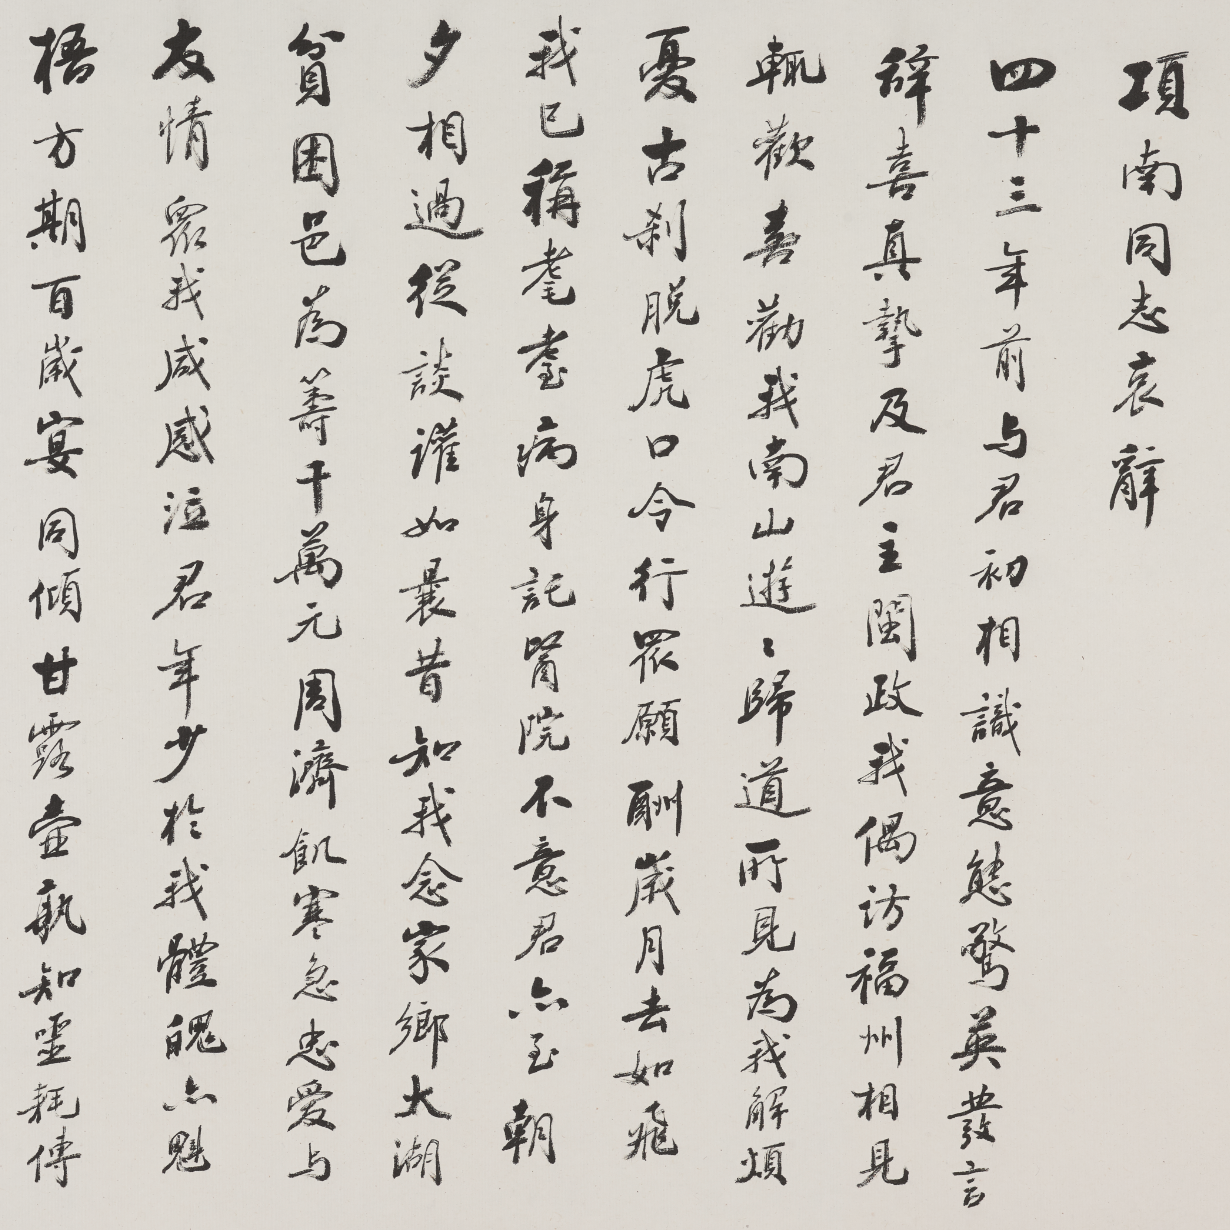 項南同志哀辭
四十三年前与君初相識意態驚英發言
辭喜真摯及君主閩政我偶訪福州相見
輒歡喜勸我南山遊遊歸道所見為我解煩
憂古刹脫虎口令行眾願酬歲月去如飛
我已稱耄耋病身託醫院不意君亦至朝
夕相過從談讙如曩昔知我念家鄉太湖
貧困邑為籌千萬元周濟飢寒急忠愛与
友情眾我咸感泣君年少於我體魄亦魁
梧方期百歲宴同傾甘露壺孰知噩耗傳